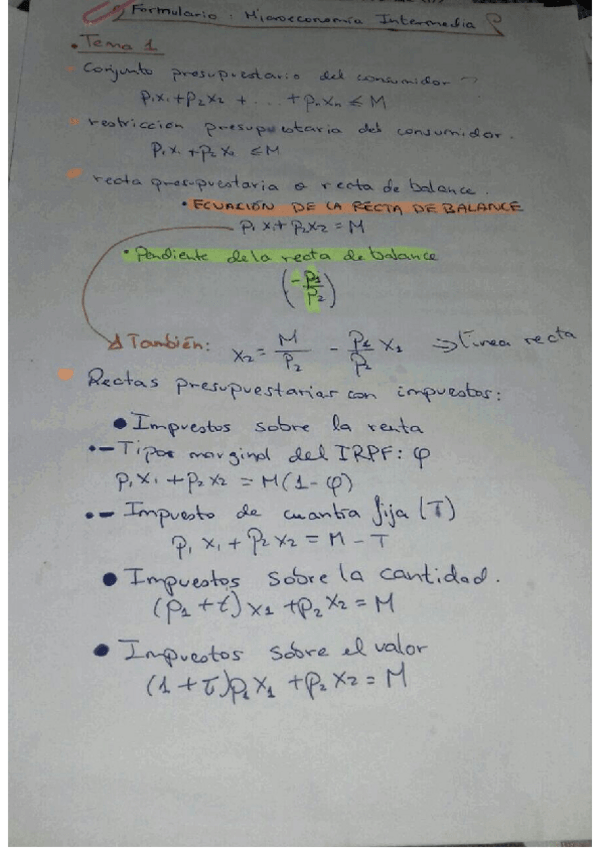 Formulario: Microeconomía Intermedia
• Tema 1
Conjunto presupuestario del consumidor →
P₁X₁+P₂X₂ + ... +PₙXₙ ≤ M
restricción presupuestaria del consumidor.
P₁X₁+P₂X₂ ≤M
recta presupuestaria o recta de balance.
• ECUACIÓN DE LA RECTA DE BALANCE
P₁X₁+P₂X₂ = M
• Pendiente de la recta de balance
(-P₁/P₂)
También: X₂ = M/P₂ - P₁/P₂ X₁ ⇒ línea recta
Rectas presupuestarias con impuestos:
• Impuestos sobre la renta
•- Tipo marginal del IRPF: φ
P₁X₁+P₂X₂ = M(1-φ)
•- Impuesto de cuantía fija (T)
P₁X₁+P₂X₂ = M-T
• Impuestos sobre la cantidad.
(P₁+t)X₁+P₂X₂ = M
• Impuestos sobre el valor
(1+τ)P₁X₁+P₂X₂ = M